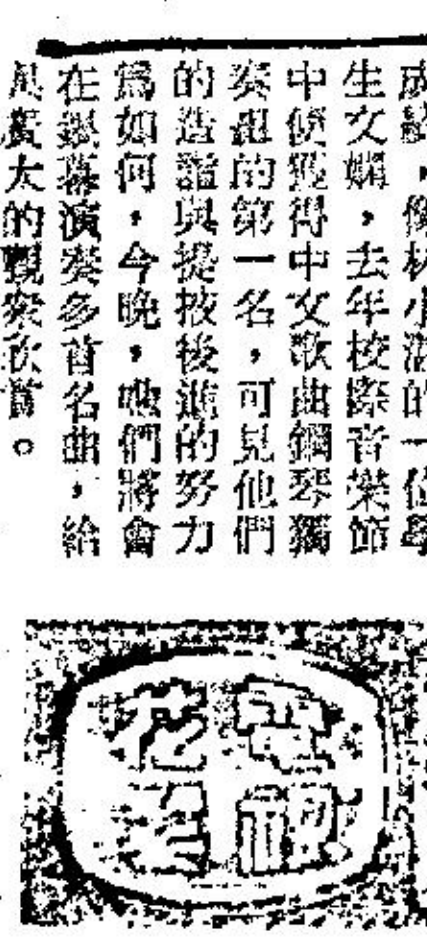 成績，像林小湛的一位學
生文娟，去年校際音樂節
中便獲得中文歌曲鋼琴獨
奏組的第一名，可見他們
的造詣與提掖後進的努力
為如何，今晚，他們將會
在銀幕演奏多首名曲，給
與廣大的觀眾欣賞。
電視
花邊